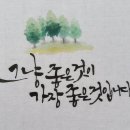 그냥 좋은것이
가장 좋은것입니다